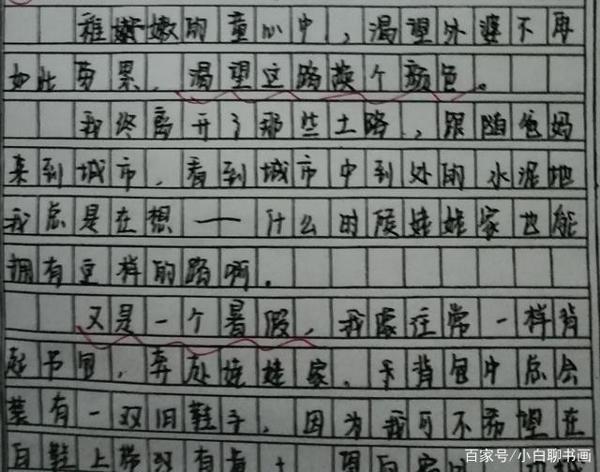 稚嫩嫩的童心中，渴望外婆不再
如此劳累，渴望这路换个颜色。
我终离开了那些土路，跟随爸妈
来到城市，看到城市中到处的水泥地
我总是在想——什么时候娃娃家也能
拥有这样的路啊。
又是一个暑假，我像往常一样背
起书包，奔赴娃娃家，背包中总会
装有一双旧鞋子，因为我可不希望在
白鞋上带
百家号/小白聊书画